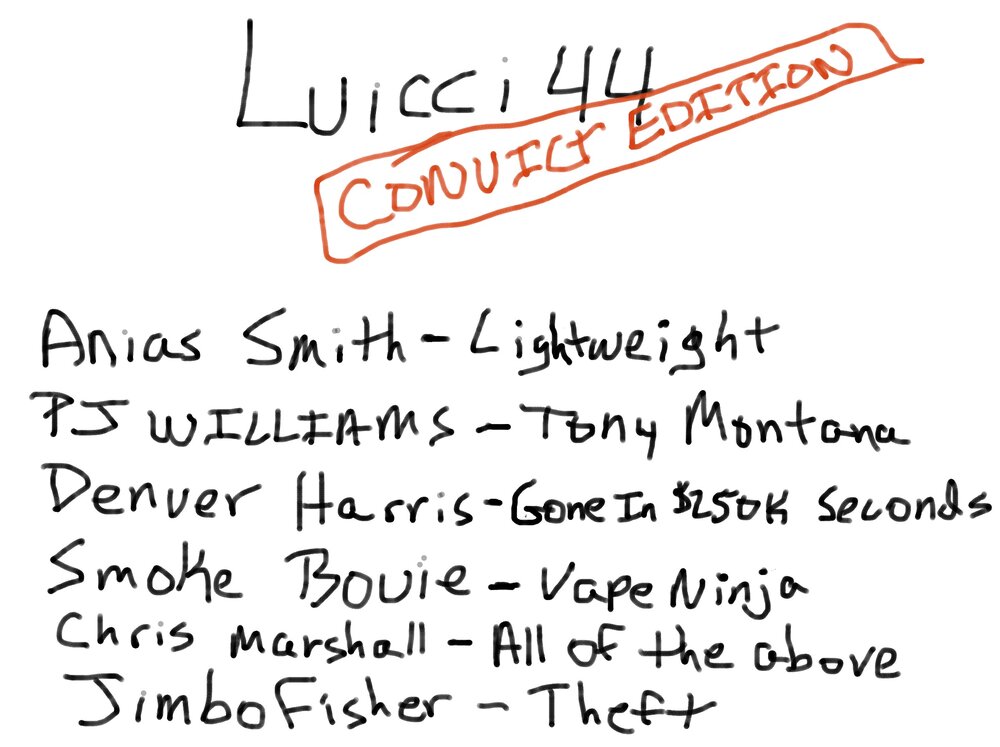 Luicci 44
CONVICT EDITION
Anias Smith - Lightweight
PJ WILLIAMS - Tony Montana
Denver Harris - Gone In $250K Seconds
Smoke Bouie - Vape Ninja
Chris Marshall - All of the above
Jimbo Fisher - Theft